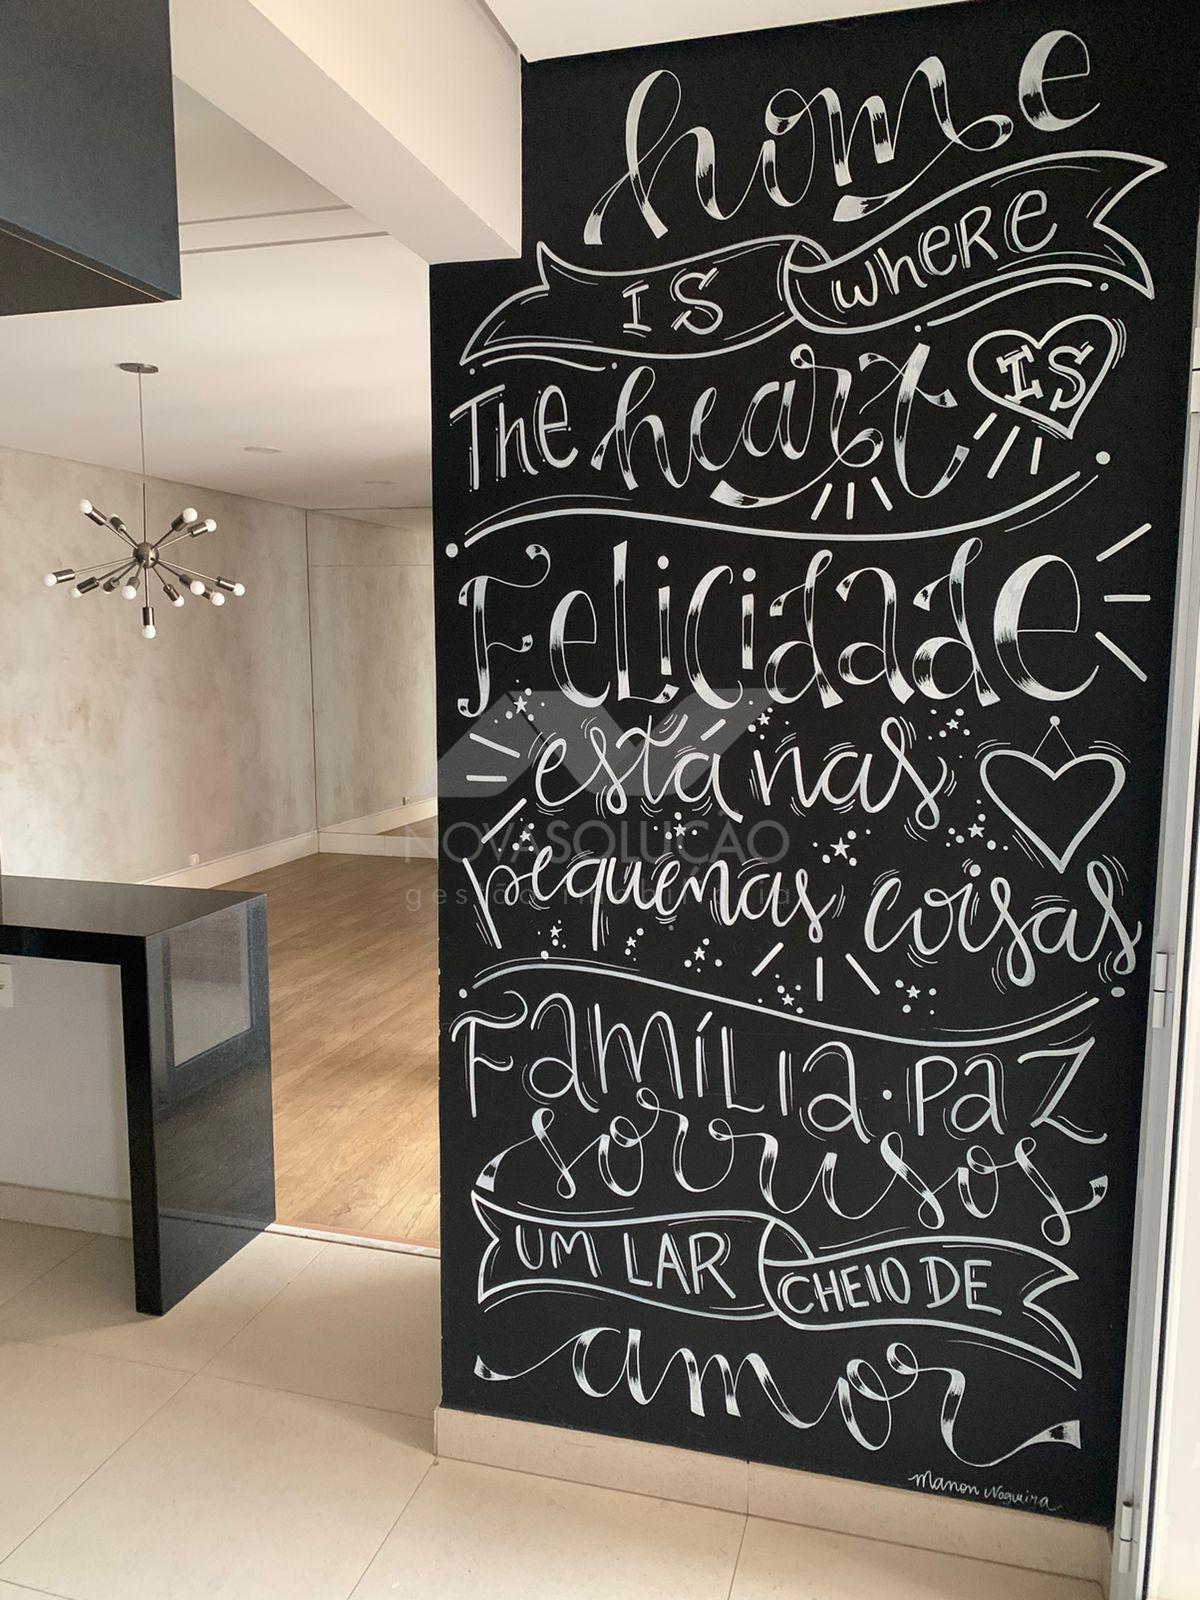 home
IS WHERE
THE heart IS
Felicidade
está nas
pequenas coisas
FAMÍLIA · PAZ
sorrisos
UM LAR CHEIO DE
amor
Manon Nogueira
NOVASOLUÇÃO
gestão imobiliária